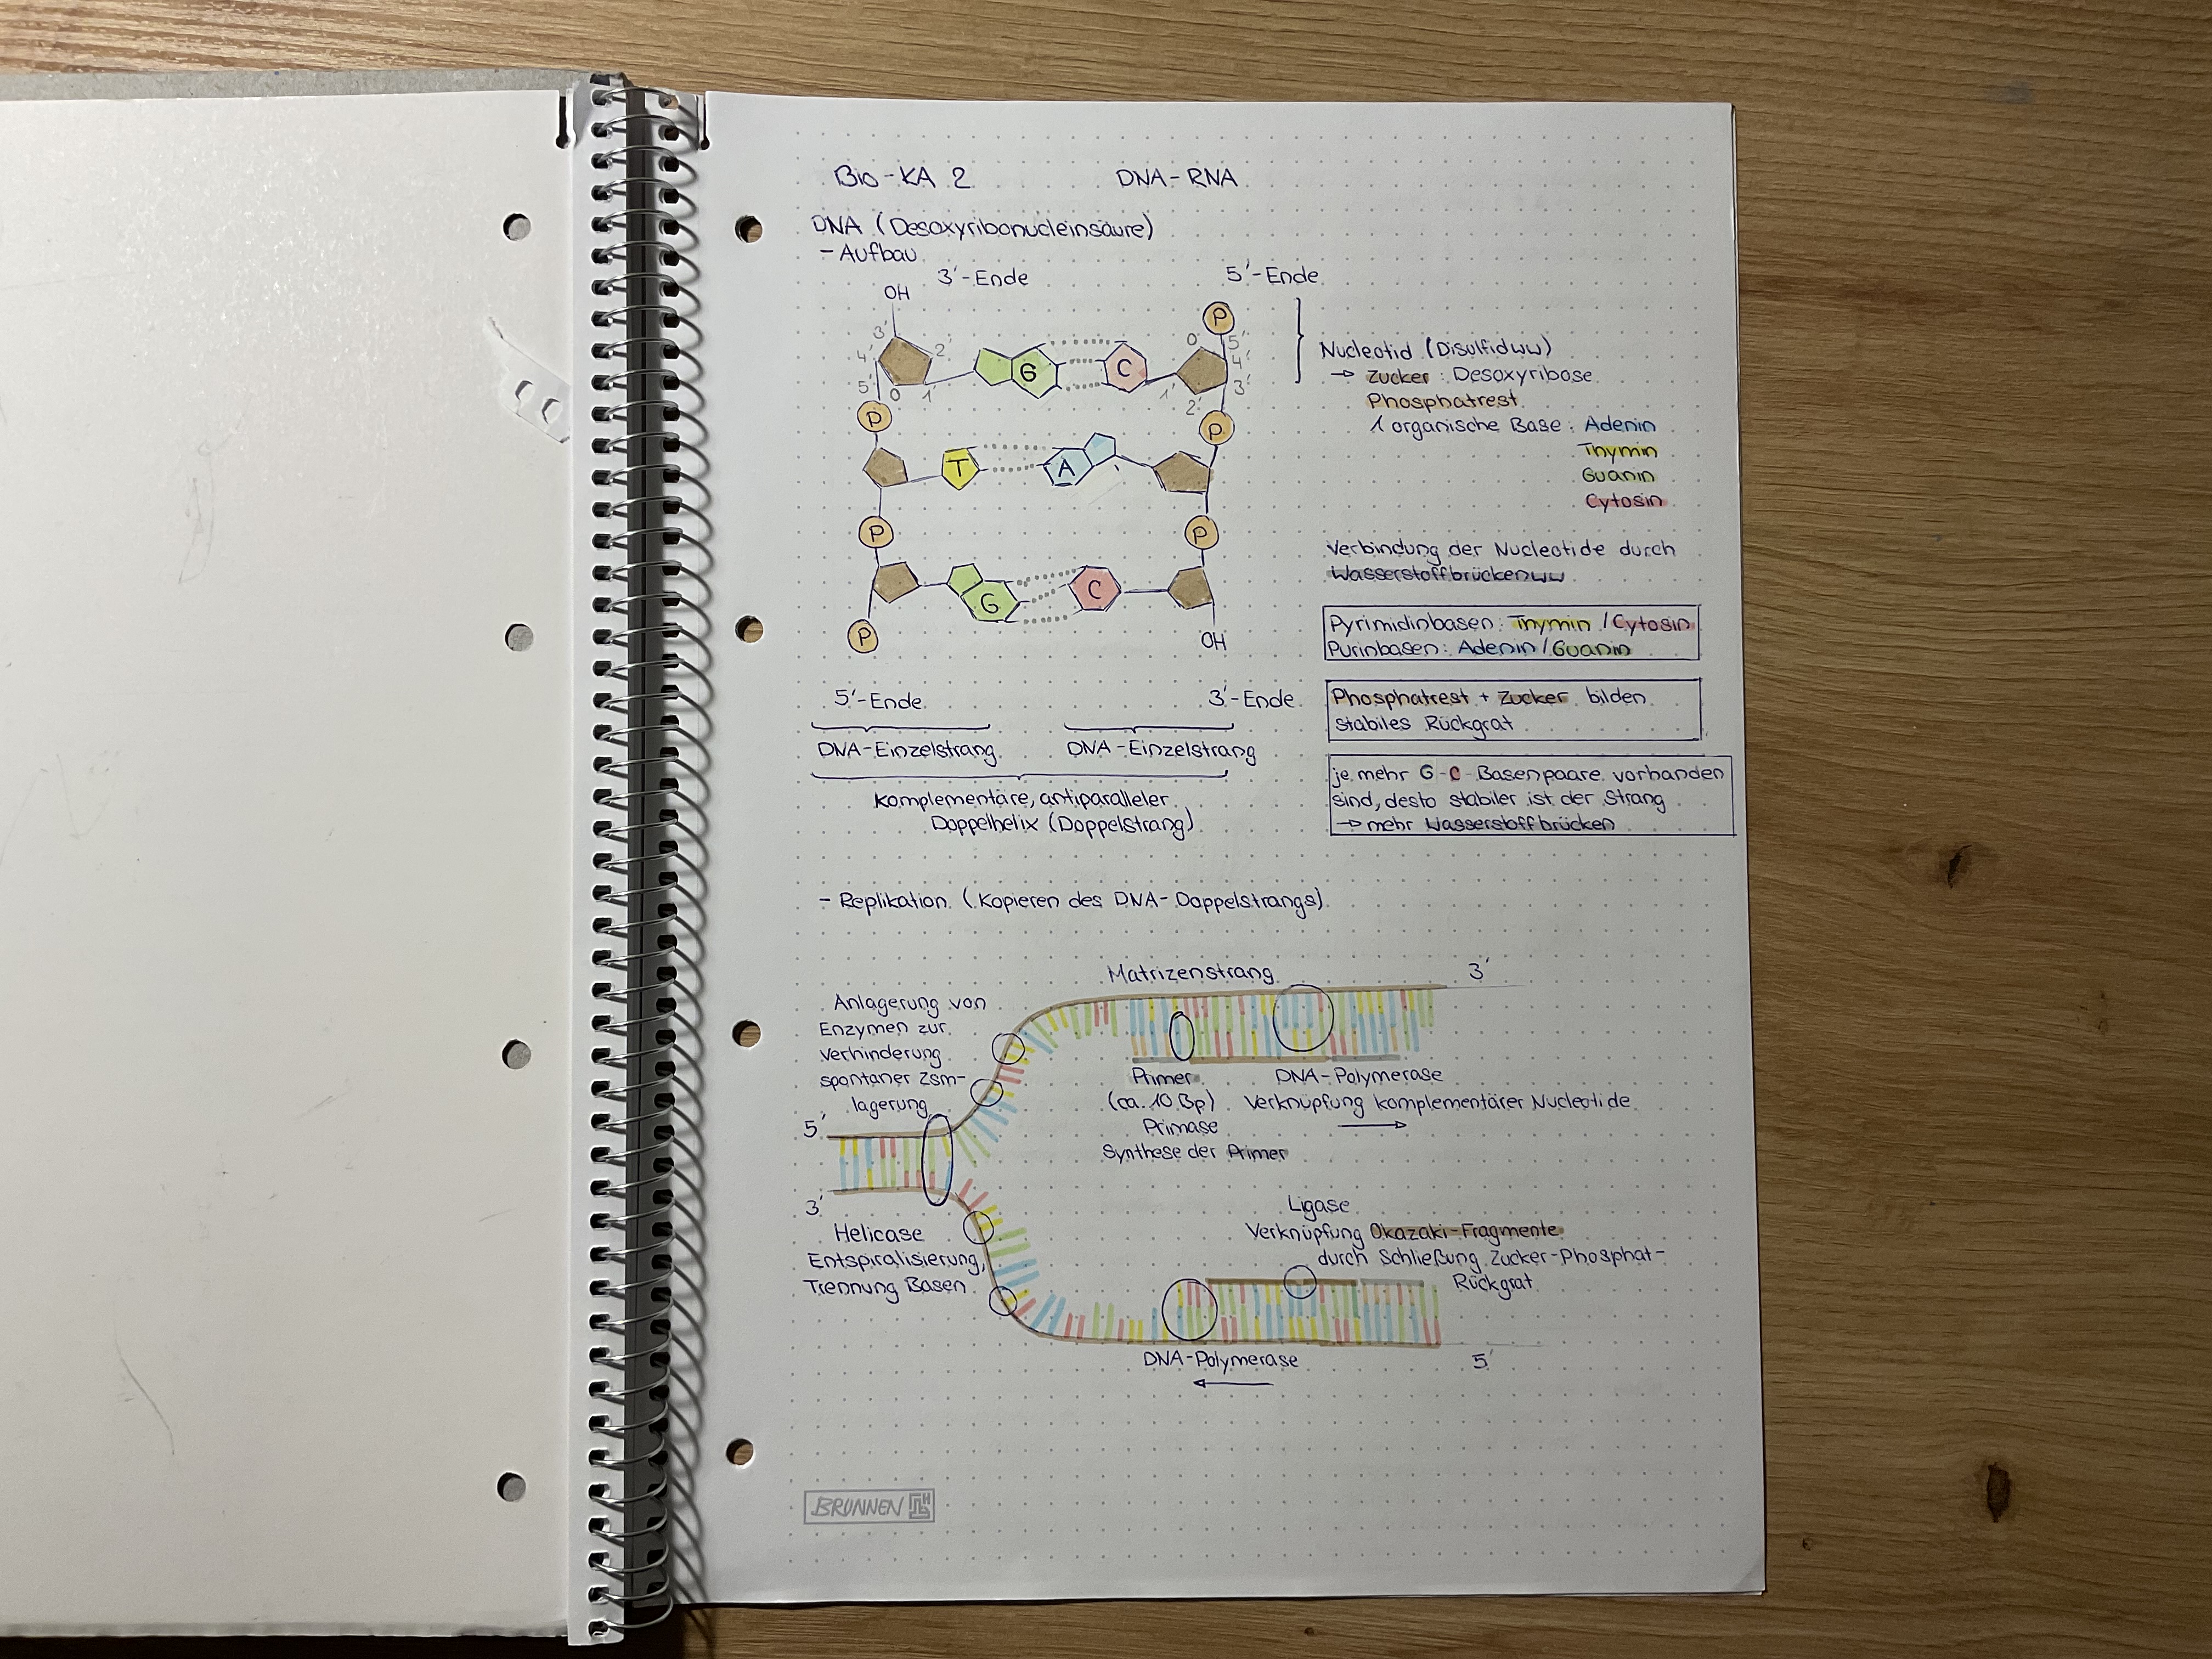 Bio-KA 2 DNA-RNA
DNA (Desoxyribonucleinsäure)
- Aufbau
3'-Ende 5'-Ende
OH
P
3' 2' 4' 5' O 1'
G C
O 5' 4' 3' 2' 1'
P P
T A
P P
G C
P OH
5'-Ende 3'-Ende
DNA-Einzelstrang DNA-Einzelstrang
Komplementäre, antiparalleler
Doppelhelix (Doppelstrang)
Nucleotid (Disulfidww)
→ Zucker: Desoxyribose
Phosphatrest
1 organische Base: Adenin
Thymin
Guanin
Cytosin
Verbindung der Nucleotide durch
Wasserstoffbrückenww
Pyrimidinbasen: Thymin / Cytosin
Purinbasen: Adenin / Guanin
Phosphatrest + Zucker bilden
stabiles Rückgrat
je mehr G-C-Basenpaare vorhanden
sind, desto stabiler ist der Strang
→ mehr Wasserstoffbrücken
- Replikation (Kopieren des DNA-Doppelstrangs)
Matrizenstrang 3'
Anlagerung von
Enzymen zur
Verhinderung
spontaner Zsm-
lagerung
5'
3'
Primer
(ca. 10 Bp)
Primase
Synthese der Primer
DNA-Polymerase
Verknüpfung komplementärer Nucleotide
→
Helicase
Entspiralisierung,
Trennung Basen
Ligase
Verknüpfung Okazaki-Fragmente
durch Schließung Zucker-Phosphat-
Rückgrat
DNA-Polymerase 5'
←
BRUNNEN